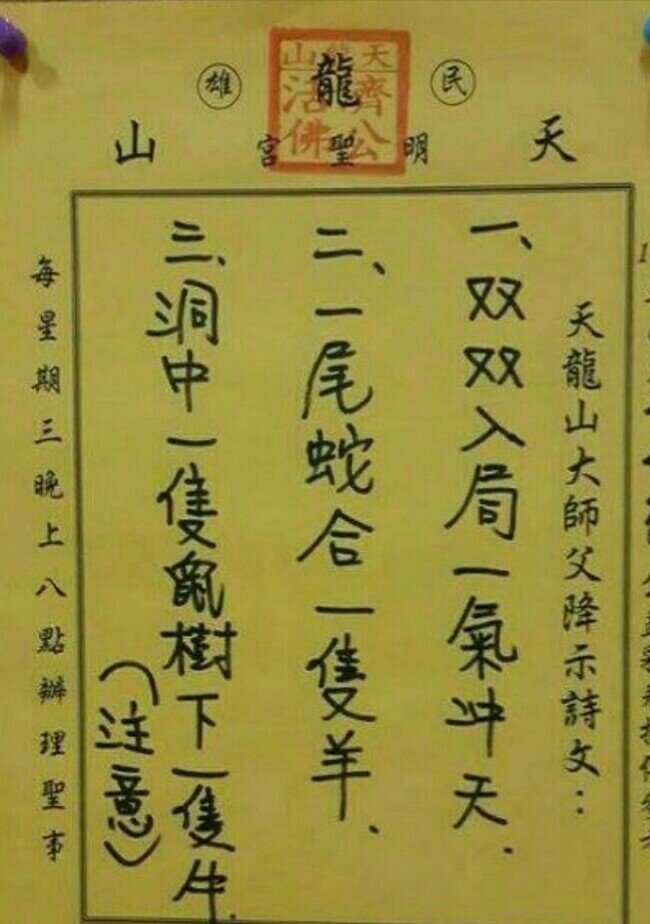 民龍雄
天明聖宮山
天龍山
濟公活佛
天龍山大師父降示詩文：
一、双双入局一氣冲天.
二、一尾蛇合一隻羊、
三、洞中一隻鼠樹下一隻牛.
（注意）
每星期三晚上八點辦理聖事